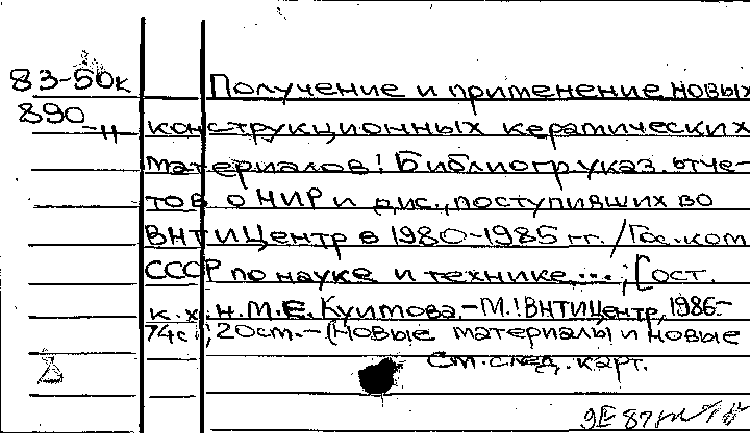 83-50к Получение и применение новых
890-н конструкционных керамических
материалов: Библиогр. указ. отче-
тов о НИР и дис., поступивших во
ВНТИЦентр в 1980-1985 гг. / Гос. ком
СССР по науке и технике...; [Сост.
к.х.н. М.Е. Куимова. - М.: ВНТИЦентр, 1986.-
74с.; 20см. - (Новые материалы и новые
См. след. карт.